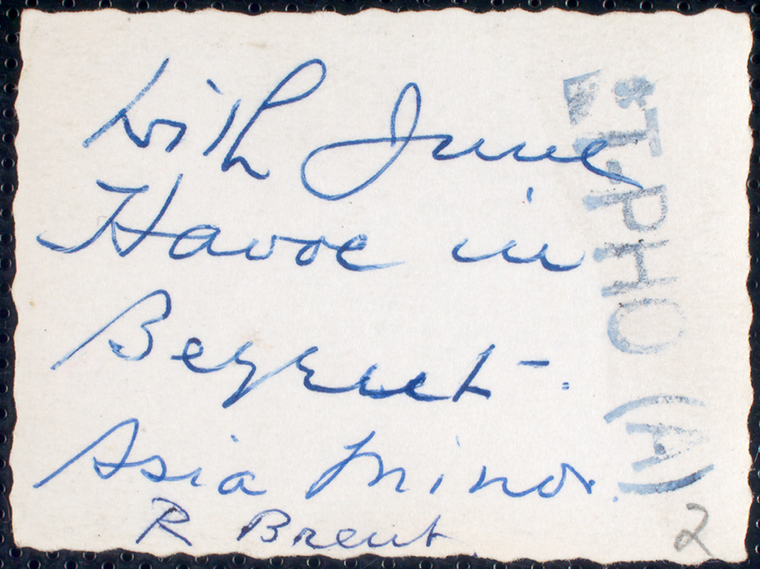 with June
Havoc in
Beyrut -.
Asia Minor.
R Brent
*T-PHO (A)
2